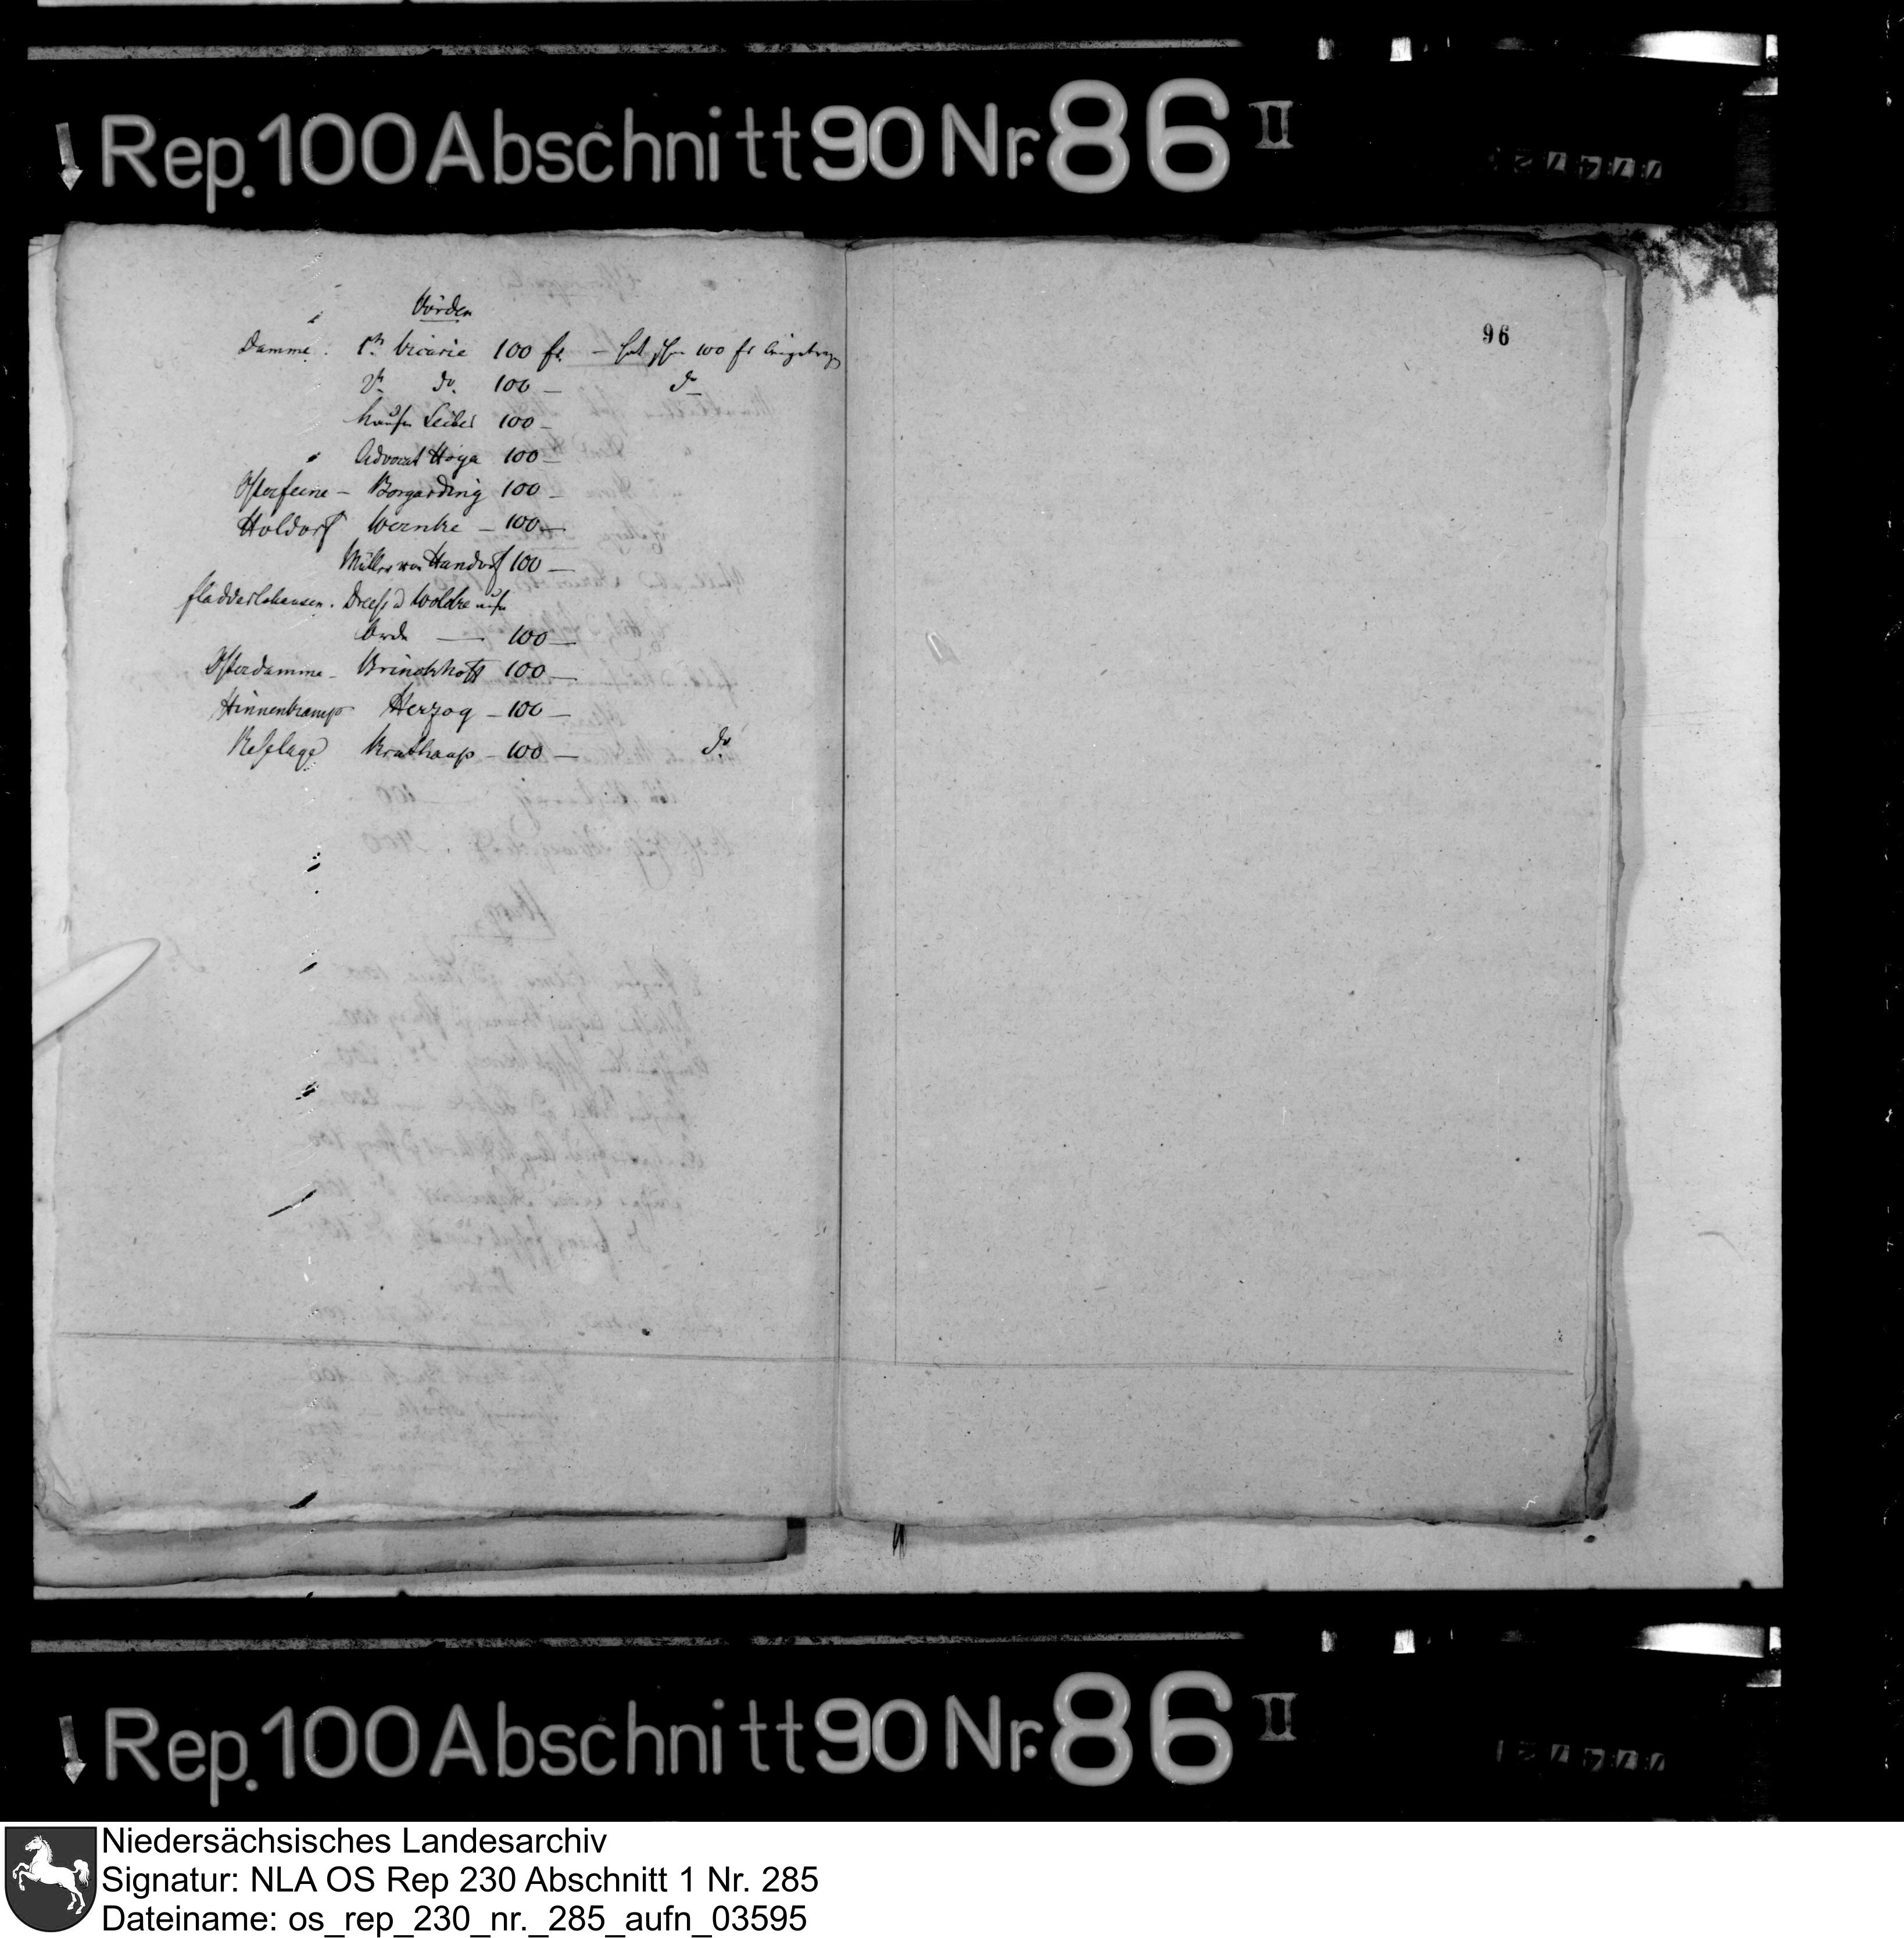 Rep. 100 Abschnitt 90 Nr. 86 II
96
Vörden
Damme. 1te. Vicarie 100 fr. — hat schon 100 fr eingetragen
2te do. 100 — do
Leiber 100 —
Advocat Hoya 100 —
Osterfeine — Borgarding 100 —
Holdorf Wernke — 100 —
Müller von Handorf 100 —
fladderlohausen. Woldke
— 100 —
Osterdamme — Brinckhoff 100 —
Hinnenkamp Herzog — 100 —
Reselage Krathaup — 100 — do
Rep. 100 Abschnitt 90 Nr. 86 II
Niedersächsisches Landesarchiv
Signatur: NLA OS Rep 230 Abschnitt 1 Nr. 285
Dateiname: os_rep_230_nr._285_aufn_03595